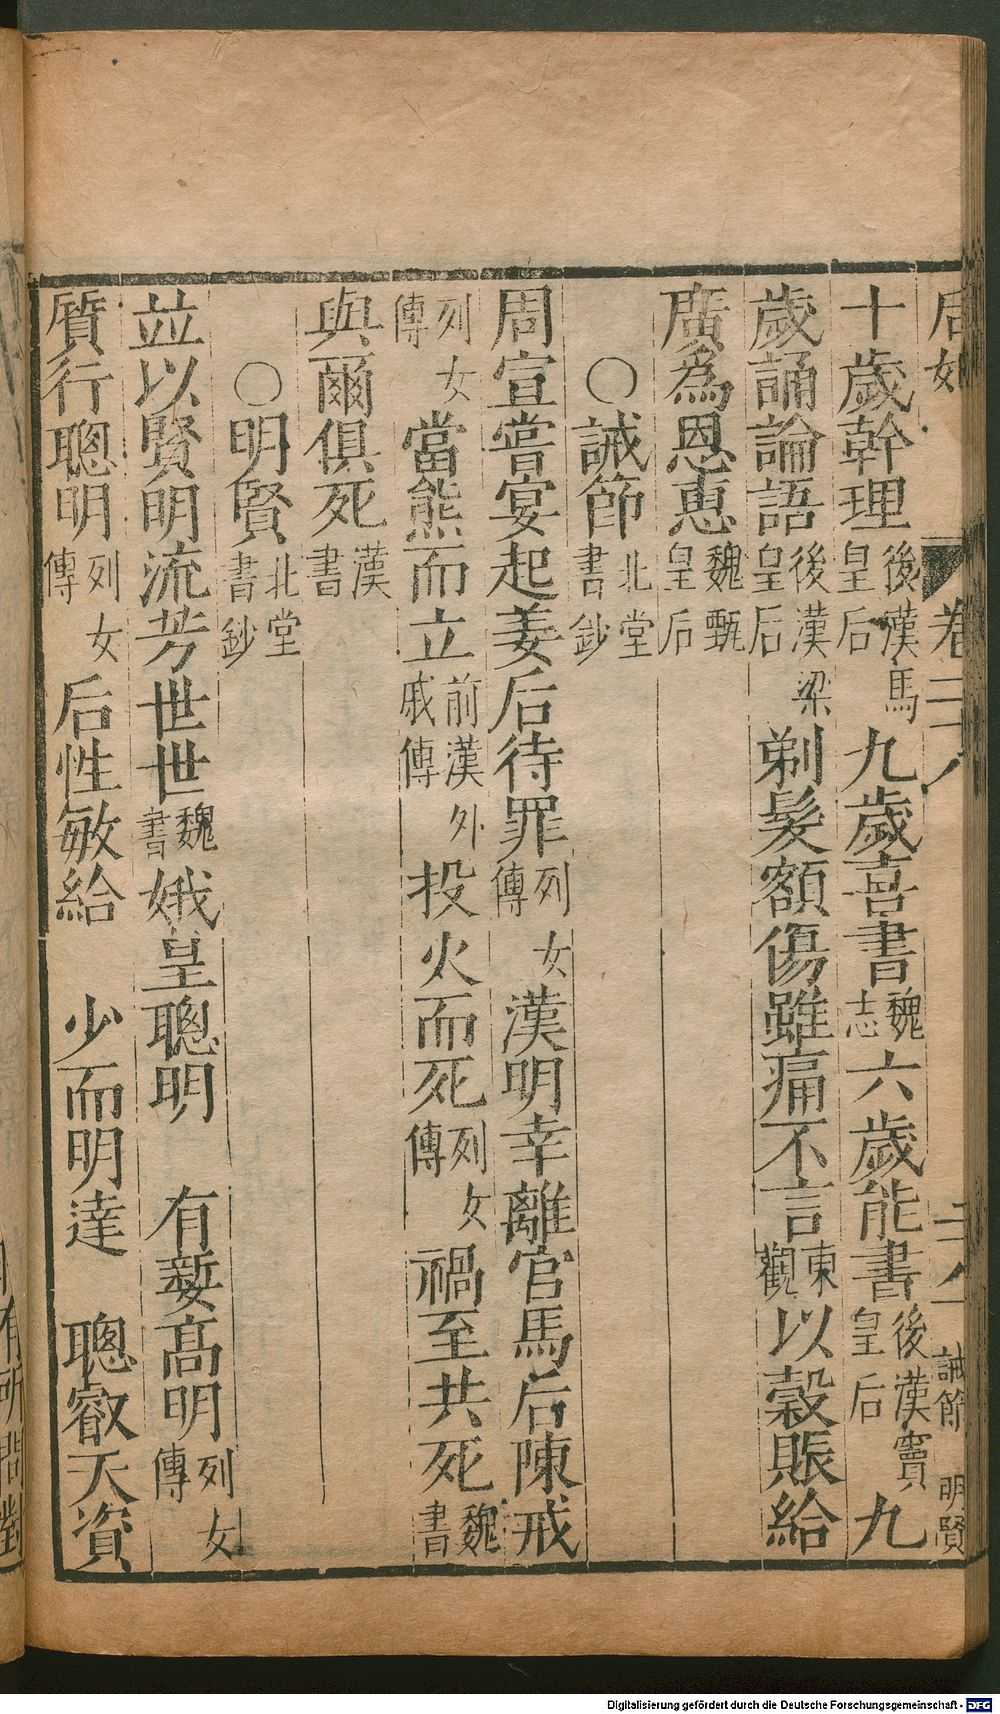 后妃 卷二八 二八 誡節 明賢
十歲幹理後漢馬皇后九歲喜書魏志六歲能書後漢竇皇后九
歲誦論語後漢梁皇后剃髮額傷雖痛不言東觀以穀賑給
廣為恩惠魏甄皇后
○誡節北堂書鈔
周宣嘗宴起姜后待罪列女傳漢明幸離官馬后陳戒
列女傳當熊而立前漢外戚傳投火而死列女傳禍至共死魏書
與爾俱死漢書
○明賢北堂書鈔
並以賢明流芳世世魏書娥皇聰明 有㜪高明列女傳
質行聰明列女傳后性敏給 少而明達 聰叡天資
Digitalisierung gefördert durch die Deutsche Forschungsgemeinschaft - DFG